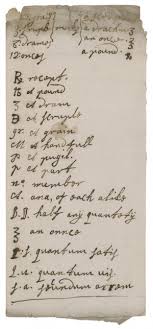 a drachm ʒ
8 drams } an once ℥
12 onces a pound. ℔
℞ recept.
℔ a pound
ʒ a dram
℈ a scruple
gr. a grain
M a handfull
p. a pugil.
p. a part
no. number
a. ana, of each alike
ß. ß. half any quantity
℥ an once
q. s. quantum satis
q. v. quantum vis
s. a. secundum artem